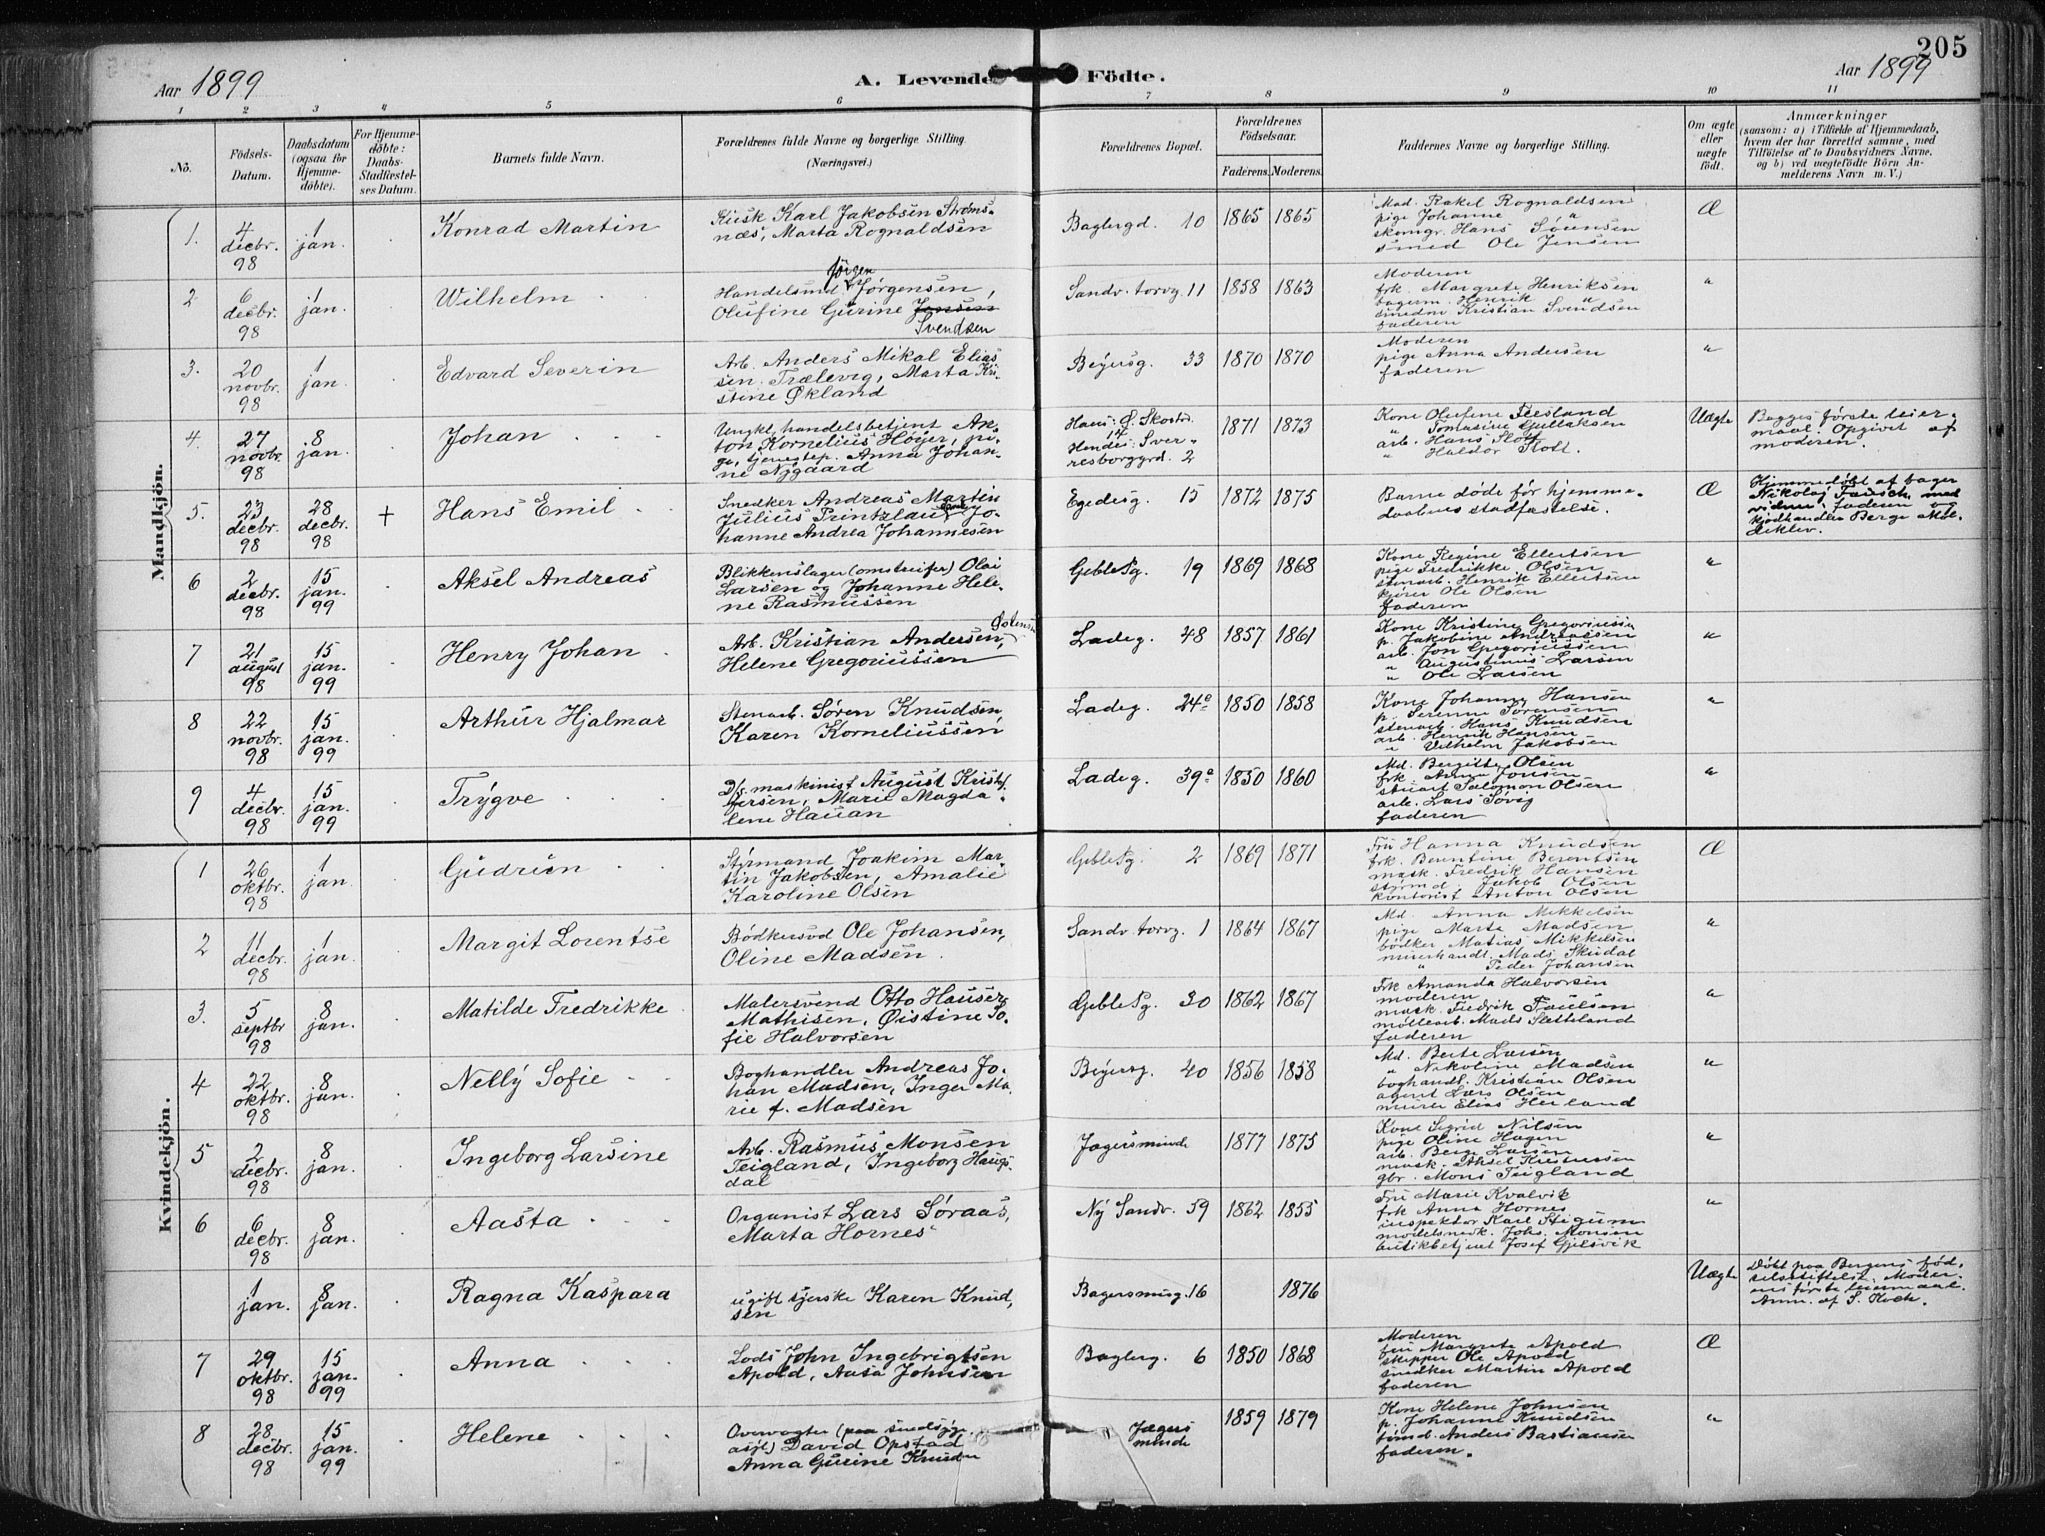 205
Aar 1899
A. Levende Födte.
Aar 1899
1 2 3 4 5 6 7 8 9 10 11
No.
Födsels-
Datum.
Daabsdatum
(ogsaa for
Hjemme-
døbte).
For Hjemme-
döbte:
Daabs-
Stadfæstel-
ses Datum.
Barnets fulde Navn.
Forældrenes fulde Navne og borgerlige Stilling.
(Næringsvei.)
Forældrenes Bopæl.
Forældrenes
Födselsaar.
Faderens.
Moderens.
Faddernes Navne og borgerlige Stilling.
Om ægte
eller
uægte
födt.
Anmærkninger
(saasom: a) i Tilfælde af Hjemmedaab,
hvem der har forrettet samme, med
Tilföielse af to Daabsvidners Navne,
og b) ved uægtefödte Börn An-
melderens Navn m. V.)
Mandkjön.
1.
4
decbr.
98
1
jan.
Konrad Martin
Kusk Karl Jakobsen Strøms-
næs, Marta Rognaldsen
Baglergd. 10
1865 1865
Mad. Rakel Rognaldsen
pige Johanne "
skomgr. Hans Sørensen
smed Ole Jensen
Æ
2
6
decbr.
98
1
jan.
Wilhelm
Jörgen
Handelsmd Jørgensen,
Olufine Gurine Jensen
Svendsen
Sandv. torvg. 11
1858 1863
Moderen
frk. Margrete Henriksen
bagerm. Henrik "
smedm Kristian Svendsen
faderen
"
3.
20
novbr.
98
1
jan.
Edvard Severin
Arb. Anders Mikal Elias
sen Trælevig, Marta Kri-
stine Økland
Beyersg. 33
1870 1870
Moderen
pige Anna Andersen
faderen
"
4.
27
novbr.
98
8
jan.
Johan
Ungkl. handelsbetjent An-
ton Kornelius Høyer, pi-
ge, tjenestep. Anna Johan-
ne Nygaard
Hans: Ø. Skostr.
14
Hendes: Sver-
resborggrd. 2
1871 1873
Kone Olufine
" Tomasine
arb. Hans Slott
" Haldor Slott.
Uægte
Begges første leier-
maal. Opgivet af
moderen.
5.
23
decbr.
98
28
decbr.
98
+
Hans Emil
Snedker Andreas Martin
Julius Printzlau, Jo-
hanne Andrea Johannesen
Egedesg. 15
1872 1875
Barne døde før hjemme-
daabens stadfæstelse.
Æ
Hjemmedøbt af bager
Nikolaj med
vidner: faderen og
kjødhandler Berge Møl-
deklev.
6
2
decbr.
98
15
jan.
99
Aksel Andreas
Blikkenslager (omstreifer) Olai
Larsen og Johanne Hele-
ne Rasmussen
Geble Pg. 19
1869 1868
Kone Regine Ellertsen
pige Fredrikke Olsen
stenarb. Henrik Ellertsen
kjører Ole Olsen
faderen
"
7
21
august
98
15
jan.
99
Henry Johan
Arb. Kristian Andersen,
Helene Gregoriussen
Ladeg. 48
1857 1861
Kone Kristine Gregoriussen
p. Jakobine Andreassen
arb. Jon Gregoriussen
" Augustinus Larsen
" Ole Larsen
"
8
22
novbr.
98
15
jan.
99
Arthur Hjalmar
Stenarb. Søren Knudsen,
Karen Korneliussen
Ladeg. 24a
1850 1858
Kone Johanne Hansen
p. Serenne Sørensen
stenarb. Hans Knudsen
arb. Henrik Hansen
" Vilhelm Jakobsen
"
9
4
decbr.
98
15
jan.
99
Trygve
D/s. maskinist August Kristof-
fersen, Marie Magda-
lene Hauan
Ladeg. 39a
1850 1860
Md. Bergitte Olsen
frk. Anna Jonsen
stuart Salomon Olsen
arb. Lars Søvig
faderen
"
Kvindekjön.
1
26
oktbr.
98
1
jan.
Gudrun
Styrmand Joakim Mar-
tin Jakobsen, Amalie
Karoline Olsen
Geble Pg. 2
1869 1871
Fru Hanna Knudsen
frk. Berentine Berentsen
mask. Fredrik Hansen
styrmd. Jakob Olsen
kontorist Anton Olsen
Æ
2
11
decbr.
98
1
jan.
Margit Lorentse
Bødkersvd Ole Johansen,
Oline Madsen.
Sandv. torvg. 1
1864 1867
Md. Anna Mikkelsen
pige Marta Madsen
bødker Matias Mikkelsen
murerhandl. Mads Skudal
" Peder Johansen
"
3.
5
septbr
98
8
jan.
Matilde Fredrikke
Malersvend Otto Hauser
Mathisen, Øistine So-
fie Halvorsen
Geble Pg. 30
1862 1867
Frk Amanda Halvorsen
moderen
mask. Fredrik Paulsen
møllearb. Mads Sletteland
faderen
"
4
22
oktbr.
98
8
jan.
Nelly Sofie
Boghandler Andreas Jo-
han Madsen, Inger Ma-
rie f. Madsen
Beyersg. 40
1856 1858
Md. Berte Larsen
" Nikoline Madsen
boghandl. Kristian Olsen
agent Lars Olsen
murer Elias Heiland
"
5
2
decbr.
98
8
jan.
Ingeborg Larsine
Arb. Rasmus Monsen
Teigland, Ingeborg Haugs-
dal
Jægersminde
1877 1875
Kone Sigrid Nilsen
pige Oline Hagen
arb. Berge Larsen
mask. Aksel Kristensen
gbr. Mons Teigland
"
6
6
decbr.
98
8
jan.
Aasta
Organist Lars Søraas,
Marta Hornes
Ny Sandv. 59
1862 1855
Fru Marie Kvalvik
frk Anna Hornes
inspektør Karl Stigum
modelsnedk. Johs. Monsen
butikbetjent Josef Gjelsvik
"
1
jan.
8
jan.
Ragna Kaspara
ugift syerske Karen Knud-
sen
Bagersmug 16
1876
Uægte
Døbt paa Bergens fød-
selsstiftelse. Moder-
ens første leiermaal.
Anm. af S. Koch.
7
29
oktbr.
98
15
jan.
99
Anna
Lods John Ingebrigtsen
Apold, Aasa Johnsen
Baglerg. 6
1850 1868
Moderen
fru Margrete Apold
skipper Ole Apold
snedker Martin Apold
faderen
Æ
8
28
decbr.
98
15
jan.
99
Helene
Overvogter (paa sindssyge-
asyl) David Opstad
Anna Gurine Knudsen
Jægers
minde
1859 1879
Kone Helene Johnsen
p. Johanne Knudsen
tømd. Anders Bastiansen
faderen.
"